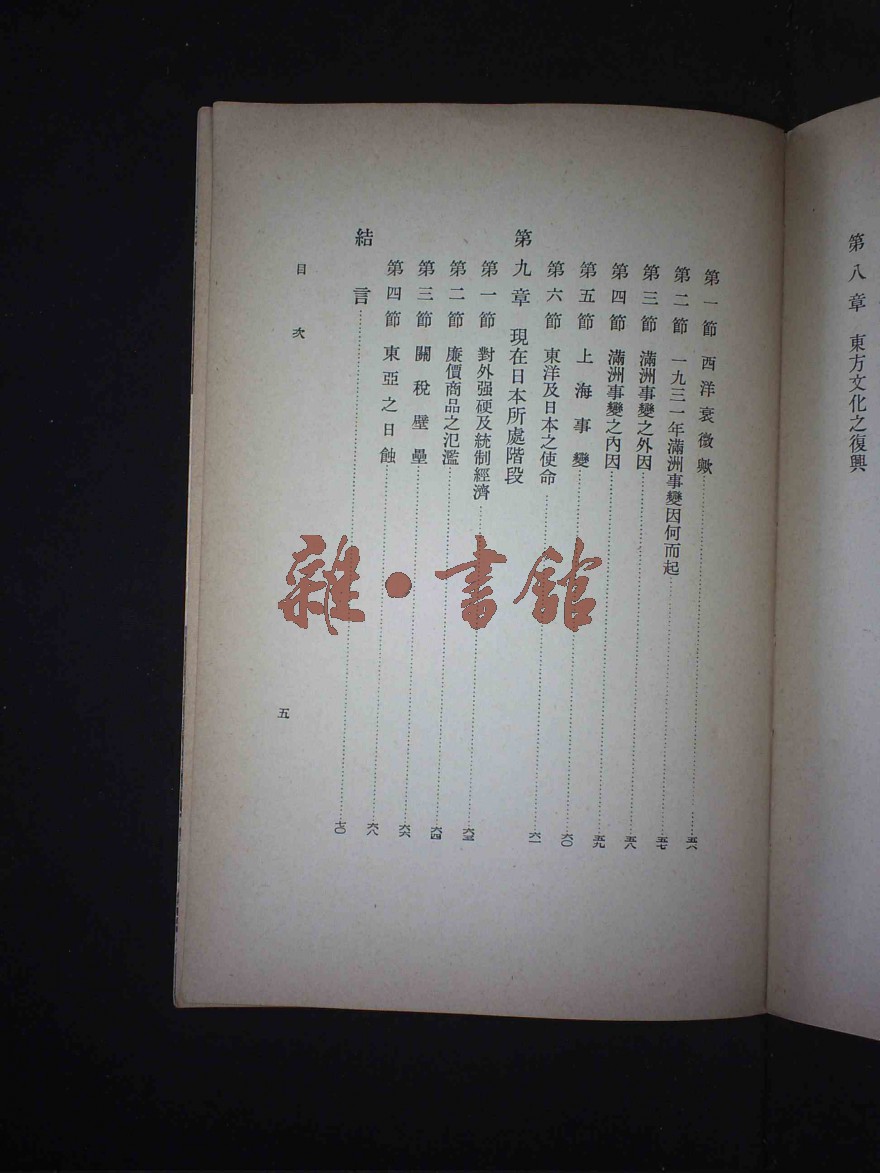 第八章 東方文化之復興
第一節 西洋衰徵歟……五六
第二節 一九三一年滿洲事變因何而起……五七
第三節 滿洲事變之外因……五八
第四節 滿洲事變之內因……五九
第五節 上海事變……六〇
第六節 東洋及日本之使命……六一
第九章 現在日本所處階段
第一節 對外强硬及統制經濟……六三
第二節 廉價商品之氾濫……六四
第三節 關稅壁壘……六六
第四節 東亞之日蝕……六八
結言……七〇
目次
五
雜·書館